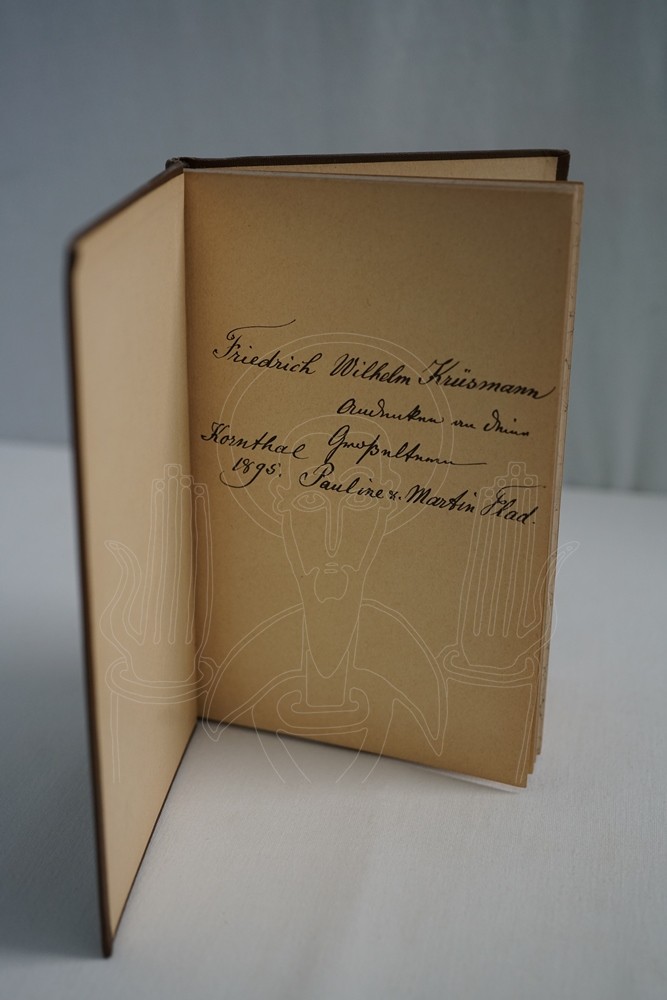 Friedrich Wilhelm Krüsmann
Andenken an deine
Kornthal Großeltern
1895. Pauline u. Martin Flad.